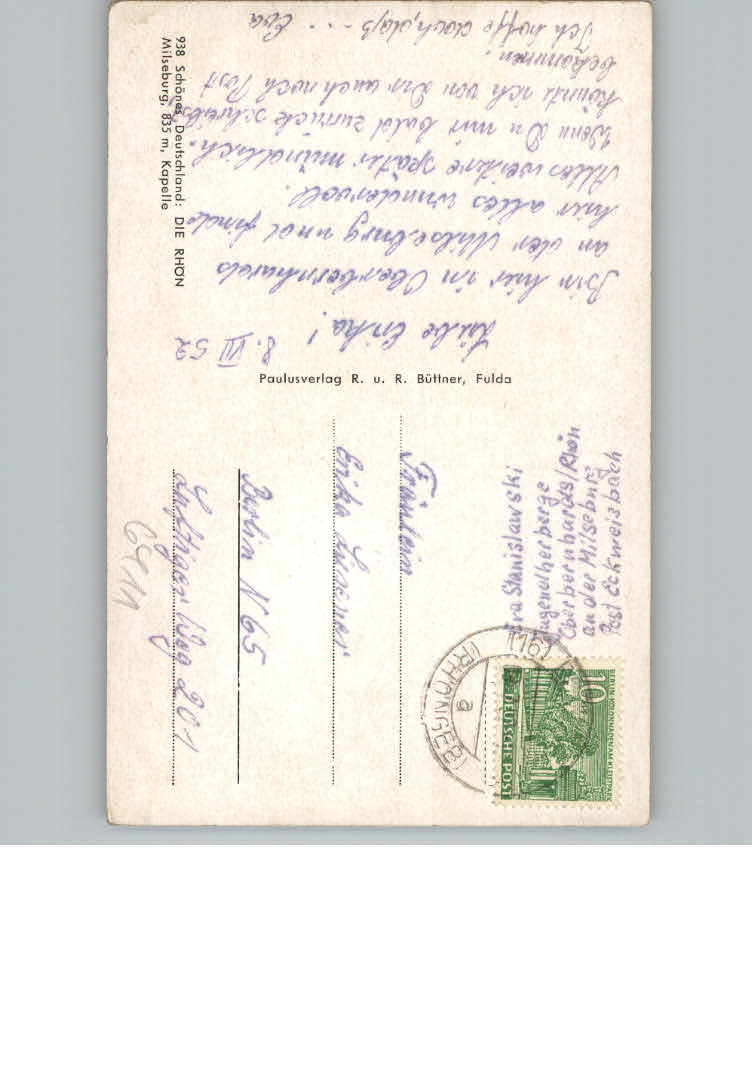 8. VII 52
Liebe Erika!
Bin hier in Oberbernhards
an der Milseburg und finde
hier alles wundervoll.
Alles weitere später mündlich.
Wenn Du mir bald zurück schreibst
könnte ich von Dir auch noch Post
bekommen.
Ich hoffe doch, daß ... Eva
938 Schönes Deutschland: DIE RHÖN
Milseburg, 835 m, Kapelle
Paulusverlag R. u. R. Büttner, Fulda
Eva Stanislawski
Jugendherberge
Oberbernhards/Rhön
an der Milseburg
Post Eckweisbach
10
DEUTSCHE POST
BERLIN KOLONNADEN AM KLEISTPARK
(RHÖNGEB)
a
Fräulein
Erika
Berlin N 65
Weg 201
6911